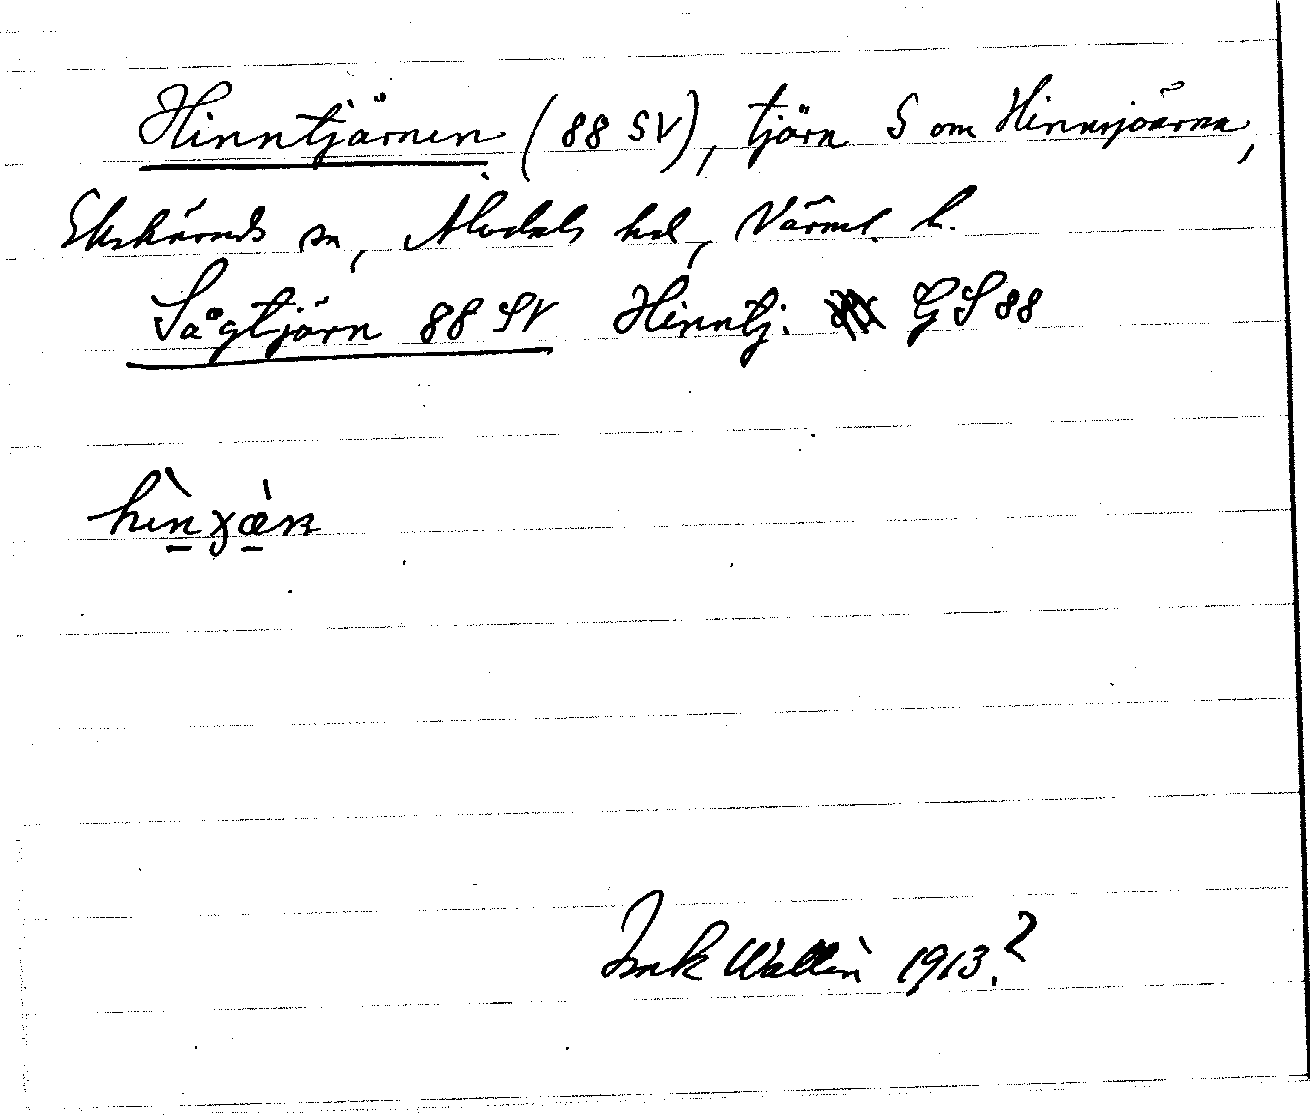 Hinntjärnen (88 SV), tjärn S om Hinnsjöarna,
Ekshärads sn, Älvdals hd, Värml. l.
Sågtjärn 88 SV Hinntj. GS 88
hìnɣæ̀n
Wallin 1913?